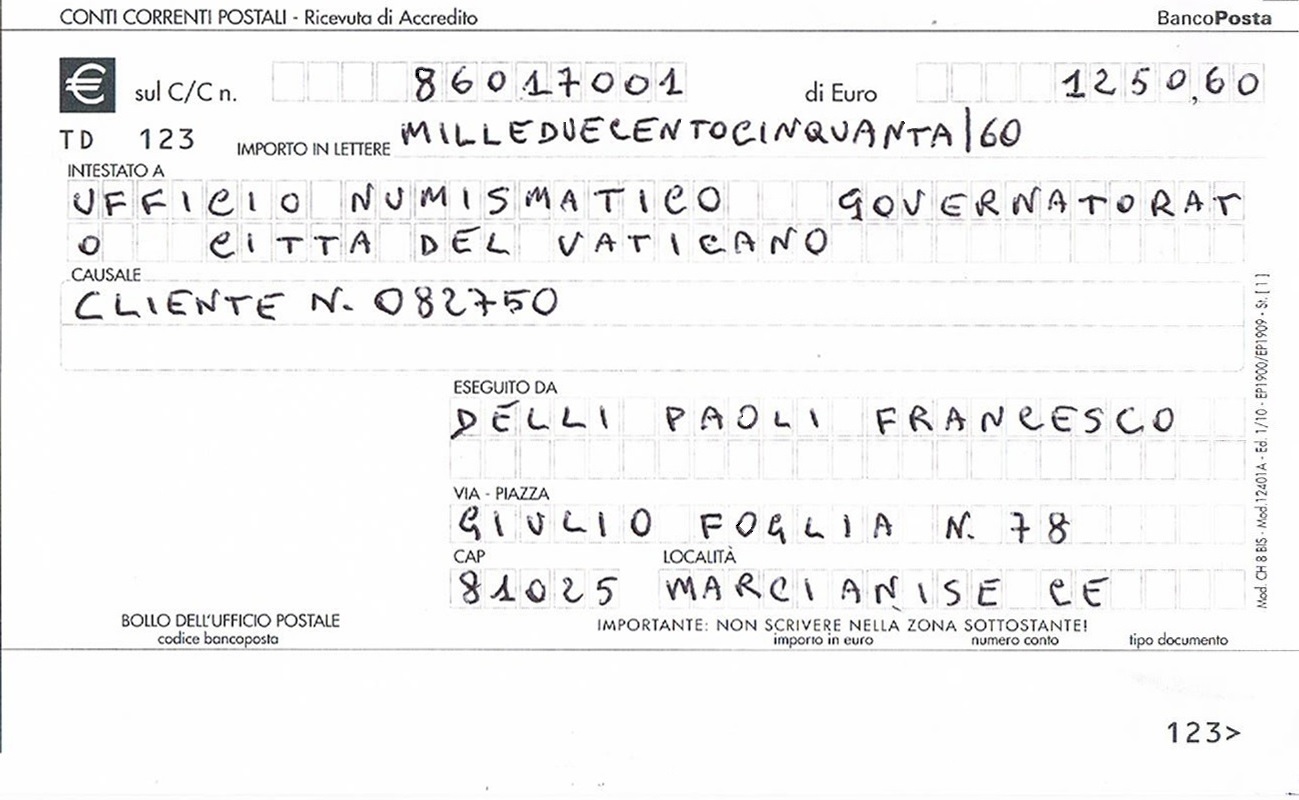 CONTI CORRENTI POSTALI - Ricevuta di Accredito BancoPosta
€ sul C/C n. 86017001 di Euro 1250,60
TD 123 IMPORTO IN LETTERE MILLEDUECENTOCINQUANTA/60
INTESTATO A
UFFICIO NUMISMATICO GOVERNATORAT
O CITTA DEL VATICANO
CAUSALE
CLIENTE N. 082750
ESEGUITO DA
DELLI PAOLI FRANCESCO
VIA - PIAZZA
GIULIO FOGLIA N. 78
CAP LOCALITÀ
81025 MARCIANISE CE
BOLLO DELL'UFFICIO POSTALE
codice bancoposta
IMPORTANTE: NON SCRIVERE NELLA ZONA SOTTOSTANTE!
importo in euro numero conto tipo documento
123>
Mod. CH 8 BIS - Mod.12401A - Ed. 1/10 - EP1900/EP1909 - St. [1]